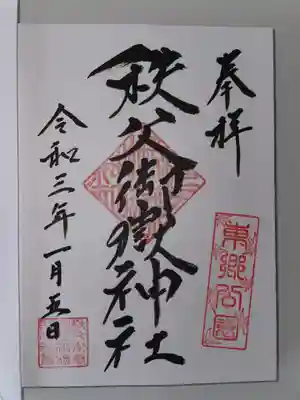 奉拝
東郷公園
秩父御嶽神社
令和三年一月五日